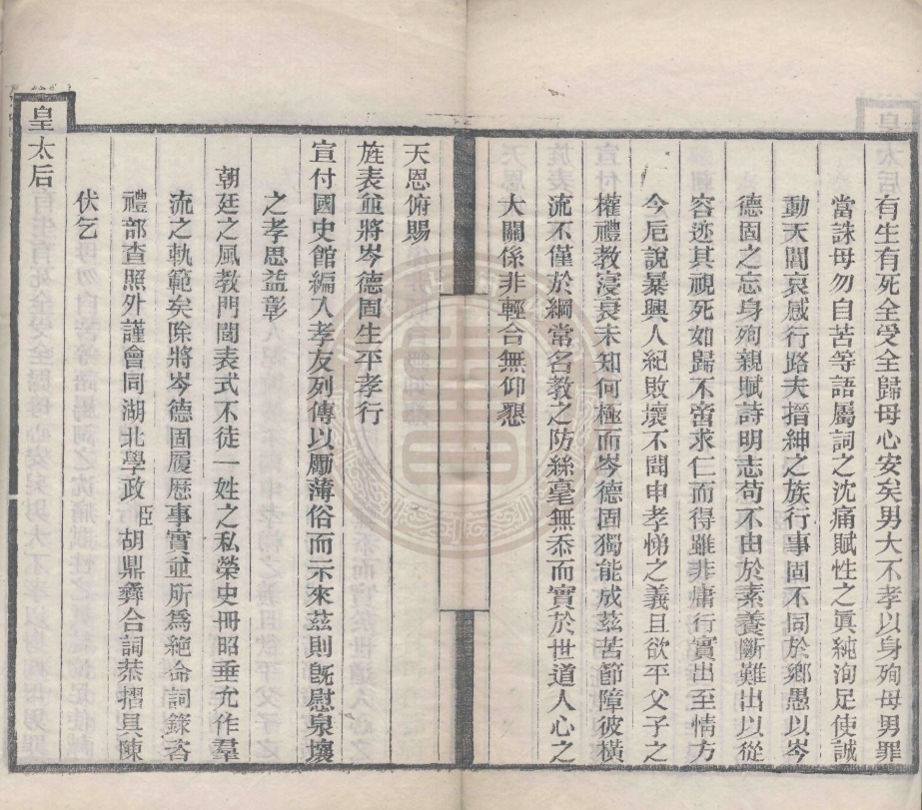 有生有死全受全歸母心安矣男大不孝以身殉母男罪
當誅母勿自苦等語屬詞之沈痛賦性之眞純洵足使誠
動天閽哀感行路夫搢紳之族行事固不同於鄉愚以岑
德固之忘身殉親賦詩明志苟不由於素養斷難出以從
容迹其視死如歸不啻求仁而得雖非庸行實出至情方
今卮說暴興人紀敗壞不聞申孝悌之義且欲平父子之
權禮教寖衰未知何極而岑德固獨能成茲苦節障彼橫
流不僅於綱常名教之防絲毫無忝而實於世道人心之
大關係非輕合無仰懇
天恩俯賜
旌表並將岑德固生平孝行
宣付國史館編入孝友列傳以厲薄俗而示來茲則旣慰泉壤
之孝思益彰
朝廷之風教門閭表式不徒一姓之私榮史冊昭垂允作羣
流之軌範矣除將岑德固履歷事實並所爲絕命詞錄咨
禮部查照外謹會同湖北學政臣胡鼎彝合詞恭摺具陳
伏乞
皇太后